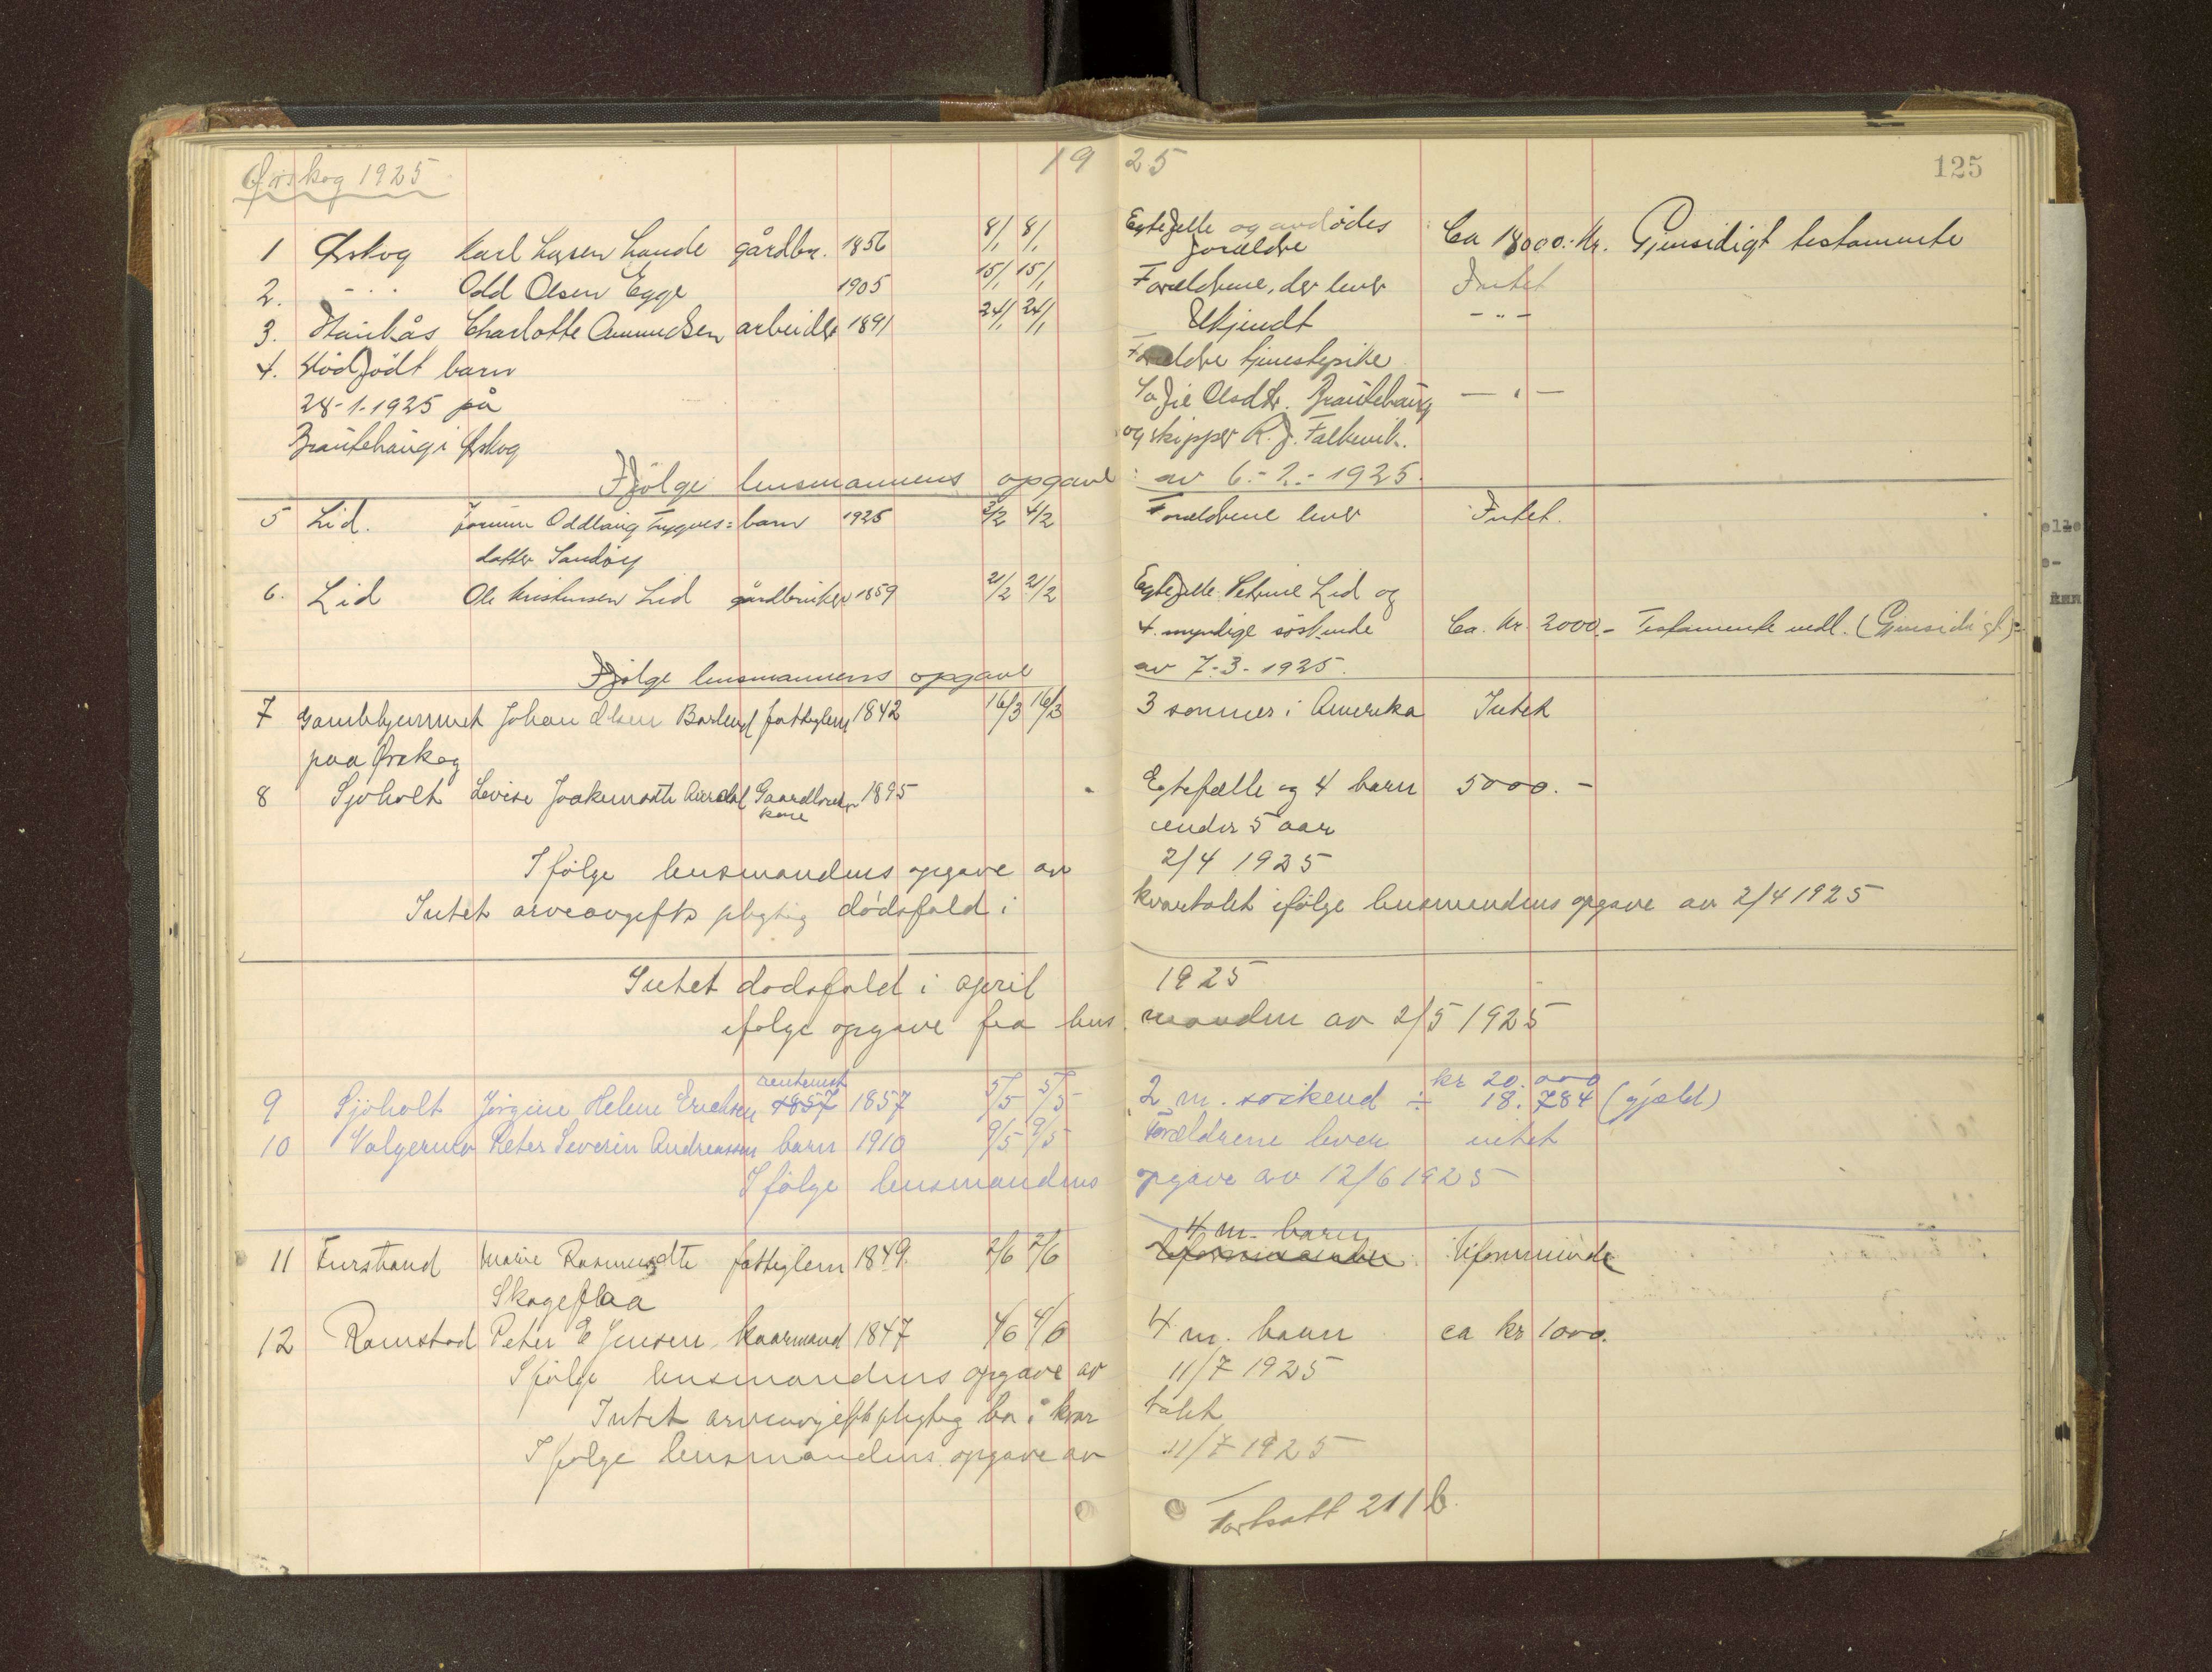 Ørskog 1925
19 25
125
1 Ørskog Karl Larsen Lande gårdbr. 1856 8/1 8/1 Egtefelle og avdødes forældre Ca 18000.- Kr. Gjensidigt testamente
2. - " - Odd Olsen Egge 1905 15/1 15/1 Forældrene, der lever Intet
3. Charlotte Amundsen arbeider 1891 24/1 24/1 Ukjendt - " -
4. Dødfødt barn Forældre tjenestepike
28-1-1925 på Olsdtr. Brautehaug - " -
Brautehaug i Ørskog og skipper R. J. Falkevik.
Ifølge lensmannens opgave av 6.-2.-1925.
5 Lid. Jorunn Oddlaug Trygves= barn 1925 3/2 4/2 Forældrene lever Intet.
datter Sandøy
6. Lid Ole Kristensen Lid gårdbruker 1859 21/2 21/2 Egtefelle Petrine Lid og
4. myndige søskende Ca. Kr. 2000.- Testamente vedl. (Gjensidigt)
Ifølge lensmannens opgave av 7-3-1925.
7 Gamlehjemmet Johan Olsen fattiglem 1842 16/3 16/3 3 sønner i Amerika Intet
paa Ørskog
8 Sjøholt Lovise Joakimsdtr Gaardbruker 1895 Egtefælle og 4 barn 5000.-
kone under 5 aar
Ifølge lensmandens opgave av 2/4 1925
Intet arveavgifts pligtig dødsfald i kvartalet ifølge lensmandens opgave av 2/4 1925
Intet dødsfald i april 1925
ifølge opgave fra lensmanden av 2/5 1925
rentenist kr 20.000
9 Sjøholt Jørgine Helene Ericksen 1857 1857 5/5 5/5 2 m. søskend ÷ 18.784 (gjæld)
10 Valgermo Peter Severin Andreassen barn 1910 9/5 9/5 Forældrene lever intet
Ifølge lensmandens opgave av 12/6 1925
4 m. barn
11 Furstrand Marie Rasmusdtr fattiglem 1849. 2/6 2/6 Uformuende Uformuende
Skageflaa
12 Ramstad Peter E Jensen kaarmand 1847 4/6 4/6 4 m. barn ca kr 1000.
Ifølge lensmandens opgave av 11/7 1925
Intet arveavgiftspligtig bo i kvartalet
Ifølge lensmandens opgave av 11/7 1925
Fortsatt 211 b.